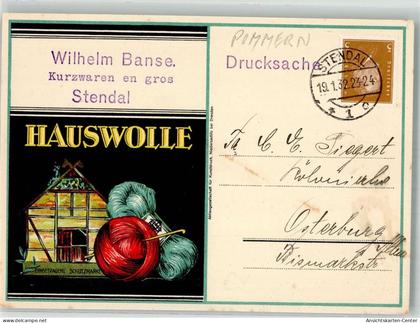 POMMERN
Wilhelm Banse.
Kurzwaren en gros
Stendal
Drucksache
STENDAL
19.1.32.23-24
* 1 c
5
HAUSWOLLE
EINGETRAGENE SCHUTZMARKE
Fa C. E. Siegert
Osterburg
Bismarkstr
Ansichtskarten-Center